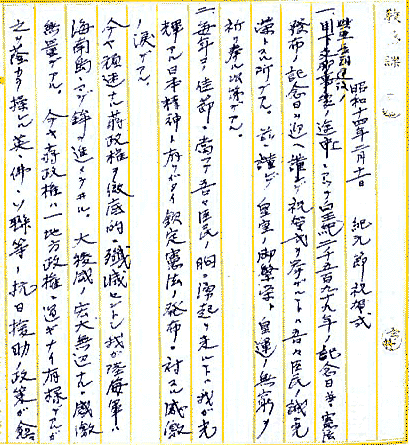 教文課
昭和十四年二月十一日 紀元節祝賀式
聖戦
一、途中ニアツテ皇紀二千五百九十九年ノ記念日並憲法
発布ノ記念日ヲ迎ヘ謹デ祝賀式ヲ挙グルハ吾々臣民ノ誠ニ光
栄トスル所デアル。茲ニ謹デ皇室ノ御繁栄ト皇運ノ無窮ヲ
祈リ奉ル次第デアル。
二、毎年コノ佳節ニ当デ吾々臣民ノ胸ニ湧起リ来ルハ我ガ光
輝アル日本精神ト有リガタイ欽定憲法ノ発布ニ対スル感激
ノ涙デアル。
今ヤ頑迷ナル蒋政権ヲ徹底的ニ殲滅セントシ我ガ陸海軍ハ
海南島ニマデ鉾ヲ進メタ。大稜威ノ宏大無辺ナル感激
無量デアル。今ヤ蒋政権ハ一地方政権ニ過ギナイ有様デアルガ
之ヲ蔭カラ操ル英、佛、ソ聯等ノ抗日援助ノ政策ガ